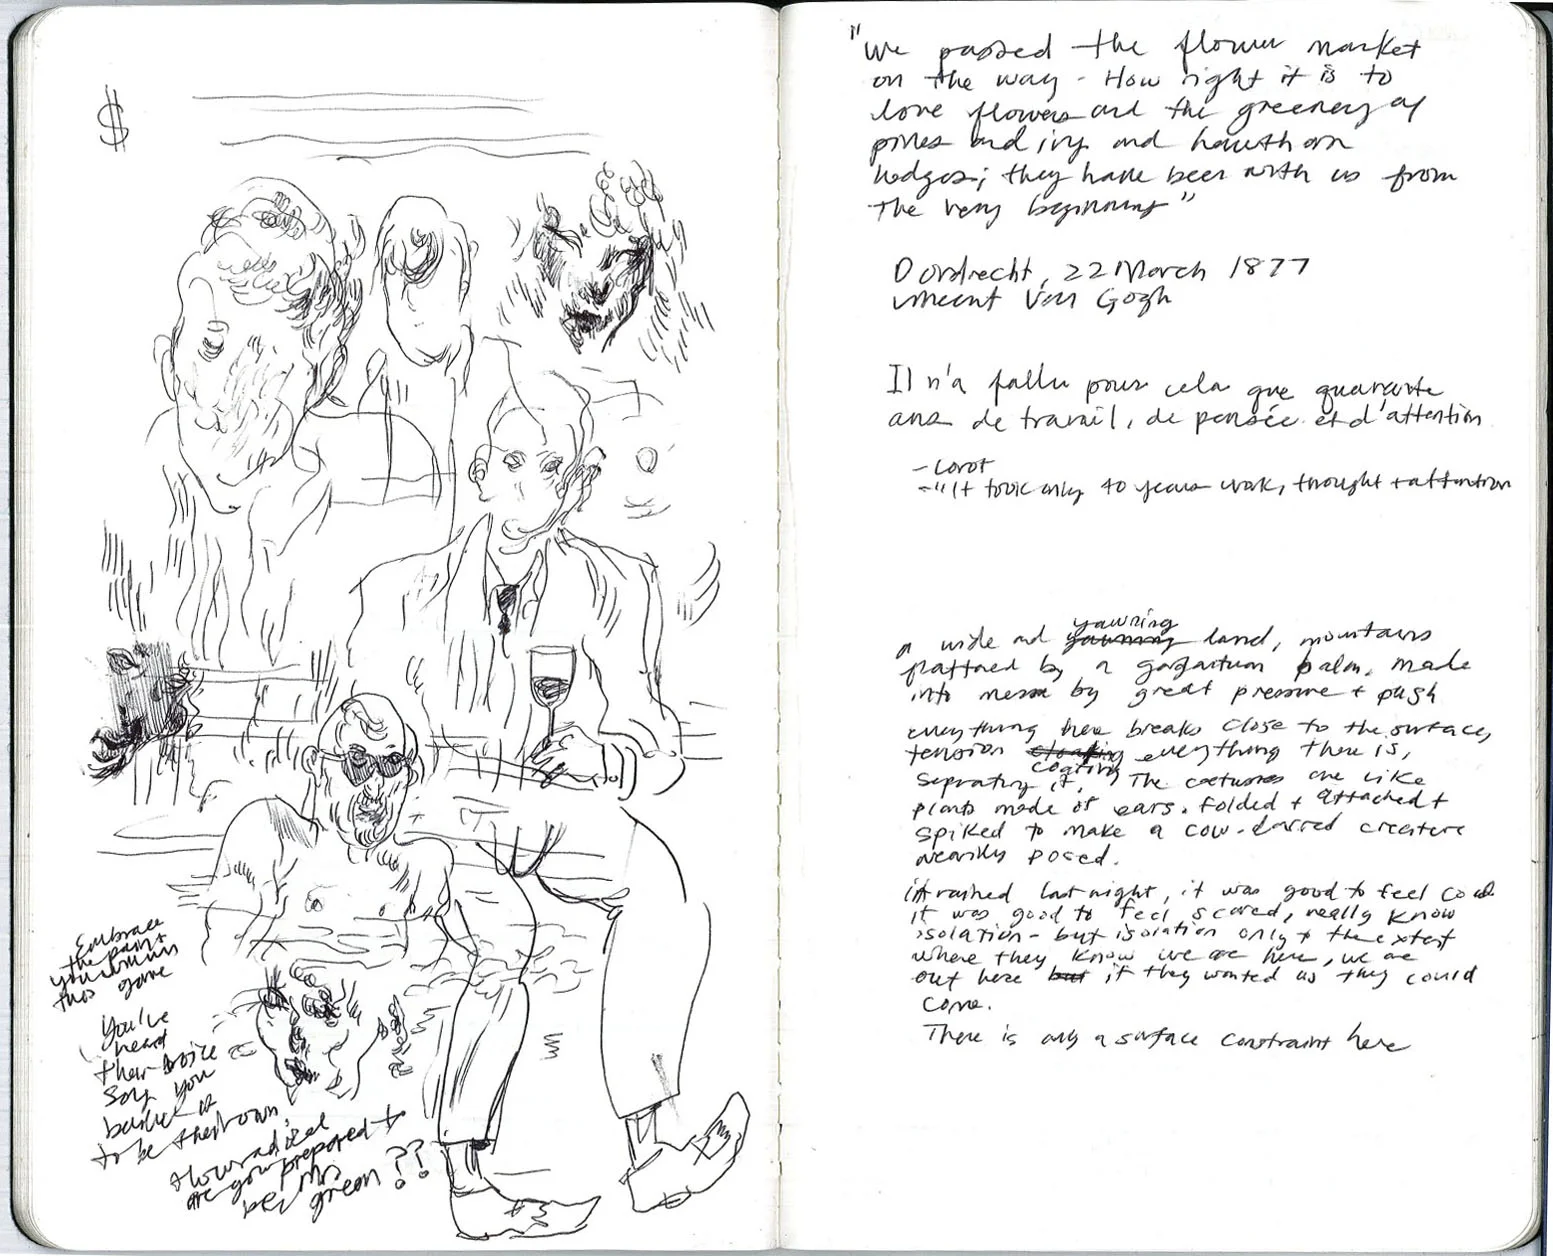 $
Embrace
the pain +
you will win
this game
You've
heard
their voice
say you
believe it
to be their own,
+ how radical
are you prepared to
be, Mrs
green ??
"We passed the flower market
on the way - How right it is to
love flowers and the greenery of
pines and ivy and hawthorn
hedges; they have been with us from
the very beginning"
Dordrecht, 22 March 1877
Vincent Van Gogh
Il n'a fallu pour cela que quarante
ans de travail, de pensée et d'attention
- Corot
- "It took only 40 years work, thought + attention
a wide and yawning land, mountains
flattened by a gargantuan palm, made
into mesa by great pressure + push
everything here breaks close to the surface,
tension coating everything there is,
sepratng it, The cactuses are like
plants made of ears. Folded + attached +
spiked to make a cow-eared creature
wearily posed.
it rained last night, it was good to feel cold
it was good to feel scared, really know
isolation - but isolation only to the extent
where they know we are here, we are
out here but if they wanted us they could
come.
There is only a surface constraint here